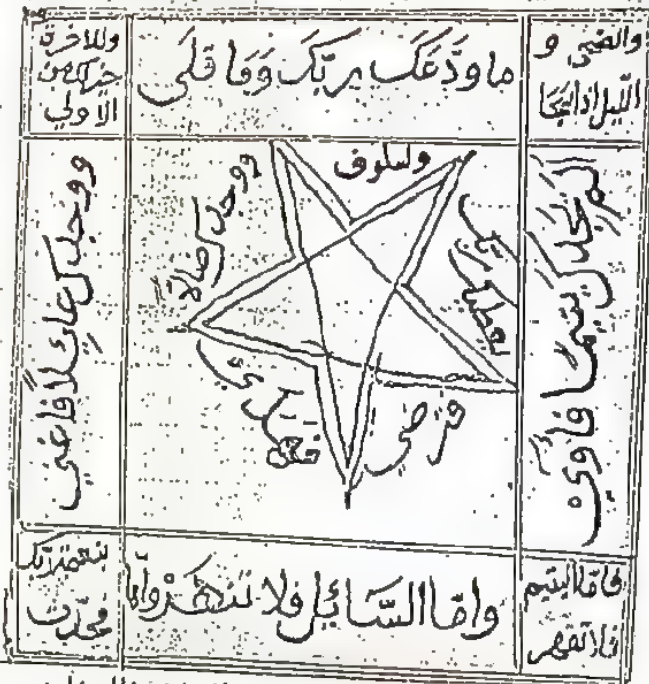 والضحى و
الليل اذا سجا
ما ودعك ربك وما قلى
وللاخرة
خير لك من
الاولى
ولسوف
يعطيك ربك
فترضى
الم يجدك يتيما فاوى
ووجدك ضالا
فهدى
ووجدك عائلا فاغنى
فاما اليتيم
فلا تقهر
واما السائل فلا تنهر واما
بنعمة ربك
فحدث